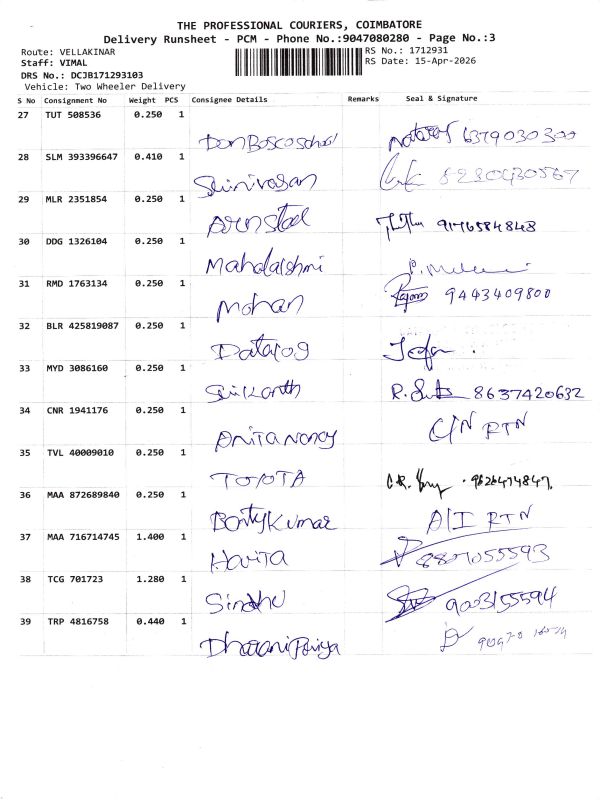 THE PROFESSIONAL COURIERS, COIMBATORE
Delivery Runsheet - PCM - Phone No.:9047080280 - Page No.:3
Route: VELLAKINAR RS No.: 1712931
Staff: VIMAL RS Date: 15-Apr-2026
DRS No.: DCJB171293103
Vehicle: Two Wheeler Delivery
S No Consignment No Weight PCS Consignee Details Remarks Seal & Signature
27 TUT 508536 0.250 1
Don Bosco school 6379030300
28 SLM 393396647 0.410 1
Srinivasan 8280430567
29 MLR 2351854 0.250 1
30 DDG 1326104 0.250 1
Mahalakshmi
31 RMD 1763134 0.250 1
Mohan 9443409800
32 BLR 425819087 0.250 1
33 MYD 3086160 0.250 1
Srikanth 8637420632
34 CNR 1941176 0.250 1
C/N RTN
35 TVL 40009010 0.250 1
TOYOTA
36 MAA 872689840 0.250 1
A/I RTN
37 MAA 716714745 1.400 1
Harita 8807055593
38 TCG 701723 1.280 1
Sindhu 9003155594
39 TRP 4816758 0.440 1